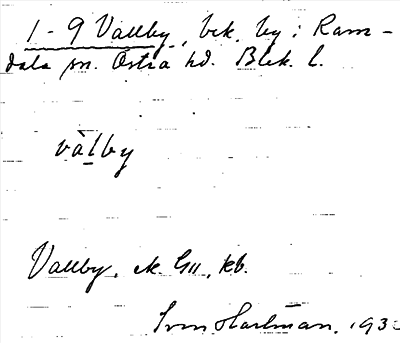 1-9 Vallby, bek. by i Ram-
dala sn. Östra hd. Blek. l.
vàlby
Vallby, ek. GII, kb.
Sven Hartman, 193